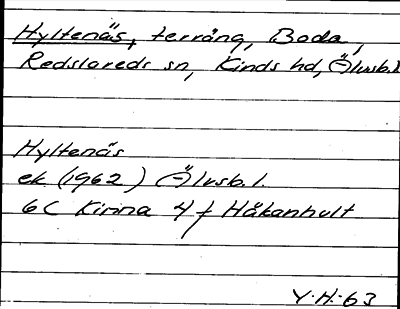 Hyltenäs, terräng, Boda,
Redslareds sn, Kinds hd, Älvsb.l
Hyltenäs
ek (1962) Älvsb. l.
6C Kinna 4 f Håkanhult
Y.H.-63